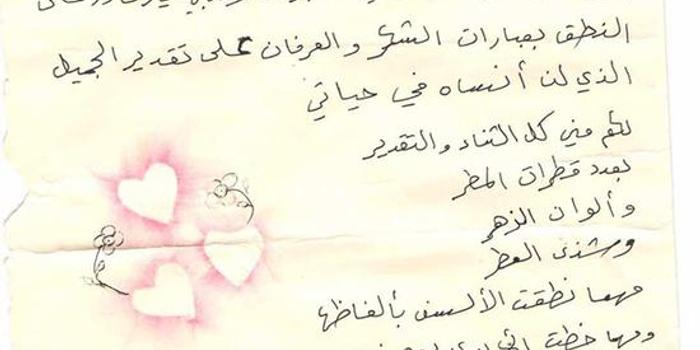 النطق بعبارات الشكر والعرفان على تقدير الجميل
الذي لن أنساه في حياتي
لكم مني كل الثناء والتقدير
بعدد قطرات المطر
وألوان الزهر
وشذى العطر
مهما نطقت الألسن بألفاظها
ومهما خطت